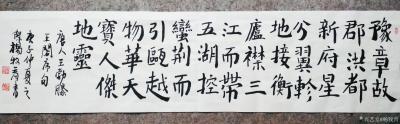 豫章故
郡洪都
新府星
分翼軫
地接衡
廬襟三
江而帶
五湖控
蠻荊而
引甌越
物華天
寶人傑
地靈
唐人王勃滕
王閣序句
庚子仲夏之
楊牧青書
@杨牧青